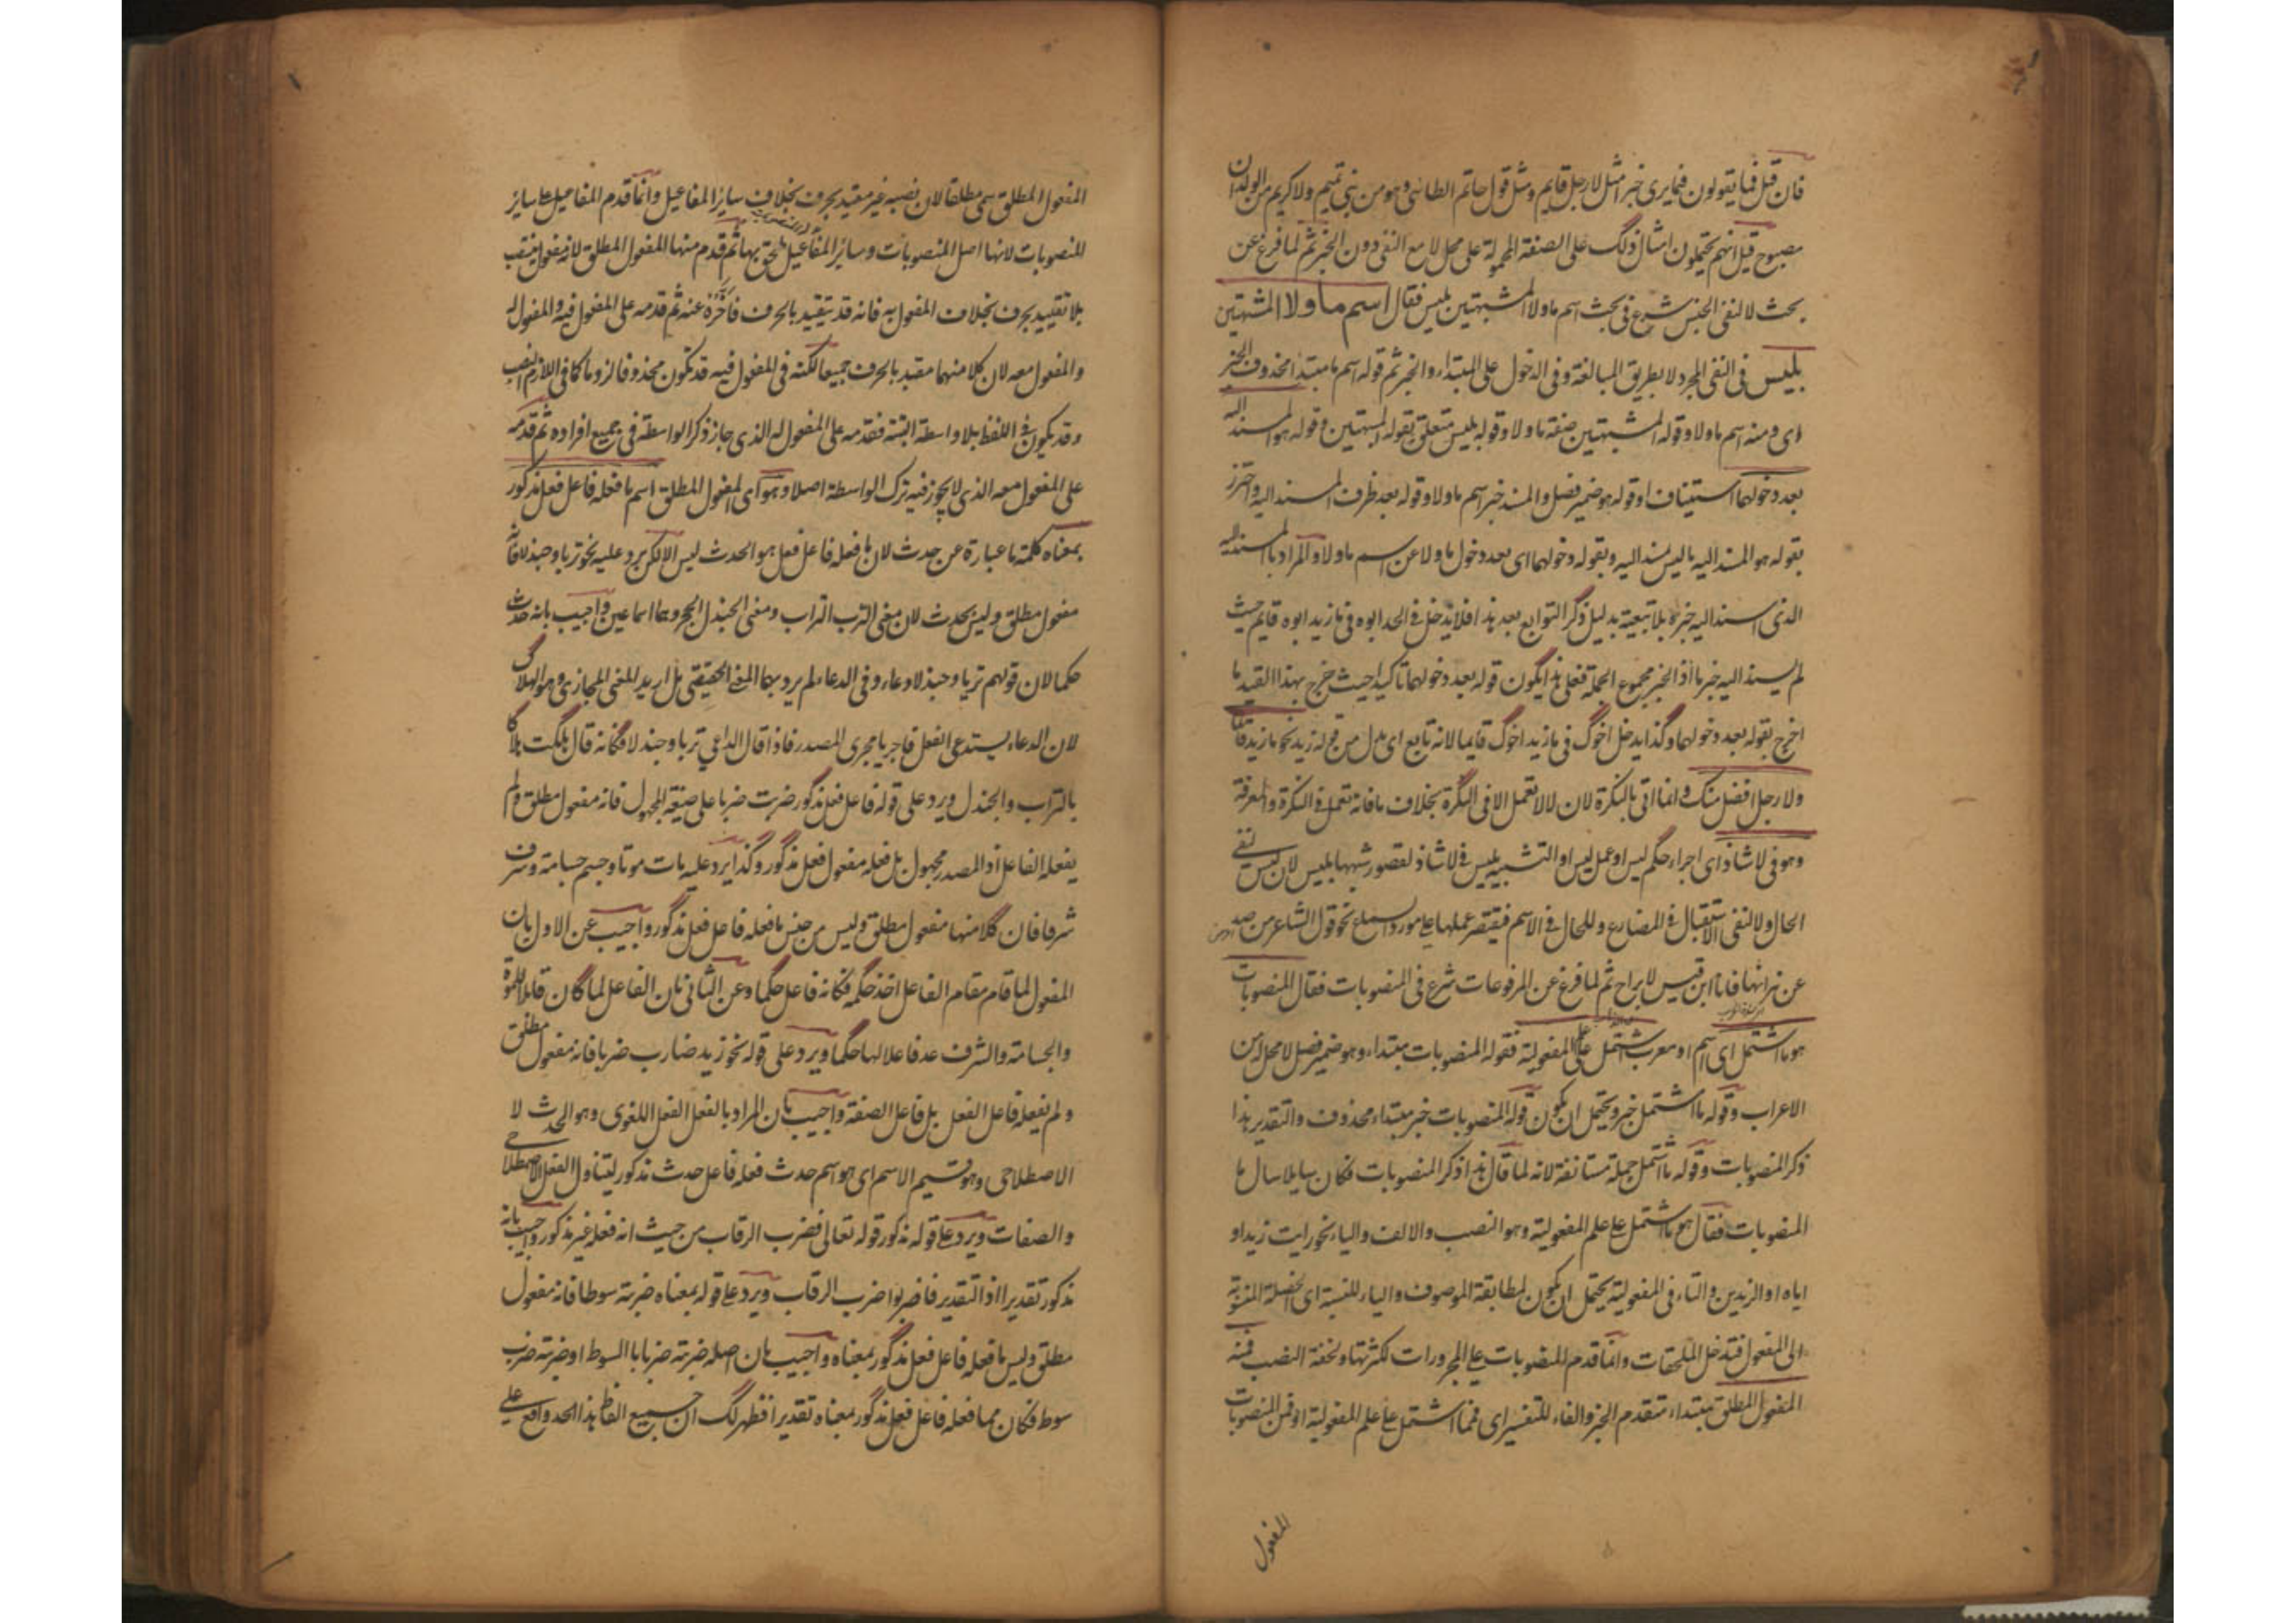 فان قيل فما يقولون فيما يرى خبرا مثل لا رجل قايم ومثل قول حاتم الطائى وهو من بنى تميم ولا كريم من الولدان
مصبوح قيل انهم يحملون امثال ذلك على الصفة المحمولة على محل لا مع النفى دون الخبر ثم لما فرغ عن
بحث لا لنفى الجنس شرع فى بحث اسم ما ولا المشبهتين بليس فقال اسم ما ولا المشبهتين
بليس فى النفى المجرد لا بطريق المبالغة وفى الدخول على المبتداء والخبر ثم قوله اسم ما مبتدا محذوف الخبر
اى ومنه اسم ما ولا وقوله المشبهتين صفة ما ولا وقوله بليس متعلق بقوله المشبهتين وقوله هو المسند اليه
بعد دخولهما استيناف او قوله هو ضمير فصل والمسند خبر اسم ما ولا وقوله بعد ظرف المسند اليه واحترز
بقوله هو المسند اليه ما ليس مسند اليه وبقوله دخولهما اى بعد دخول ما ولا عن اسم ما ولا والمراد بالمسند اليه
الذى اسند اليه خبره بلا تبعية بدليل ذكر التوابع بعد هذا فلا يدخل فى الحد ابوه فى ما زيد ابوه قايم حيث
لم يسند اليه خبر ما اذ الخبر مجموع الجملة فعلى هذا يكون قوله بعد دخولهما تاكيدا حيث خرج بهذا القيد ما
اخرج بقوله بعد دخولهما وكذا يدخل اخوك فى ما زيد اخوك قايما لانه تابع اى بدل من قوله زيد نحو ما زيد قائما
ولا رجل افضل منك وانما اتى بالنكرة لان لا لا تعمل الا فى النكرة بخلاف ما فانه تعمل فى النكرة والمعرفة
وهو فى لا شاذ اى اجراء حكم ليس او عمل ليس او التشبيه بليس فى لا شاذ لقصور شبهها بليس لان ليس لنفى
الحال ولا لنفى الاستقبال فى المضارع وللحال فى الاسم فيقتصر عملها على مورد السماع نحو قول الشاعر من صد
عن نيرانها فانا ابن قيس لا براح ثم لما فرغ عن المرفوعات شرع فى المنصوبات فقال المنصوبات
هو ما اشتمل اى اسم او معرب اشتمل على علم المفعولية فقوله المنصوبات مبتداء وهو ضمير فصل لا محل له من
الاعراب وقوله ما اشتمل خبر ويحتمل ان يكون قوله المنصوبات خبر مبتداء محذوف والتقدير هذا
ذكر المنصوبات وقوله ما اشتمل جملة مستانفة لانه لما قال هذا ذكر المنصوبات فكان سايلا سال ما
المنصوبات فقال هو ما اشتمل على علم المفعولية وهو النصب والالف والياء نحو رايت زيدا و
اباه او الزيدين والتاء فى المفعولية يحتمل ان يكون لمطابقة الموصوف والياء للنسبة اى الخصلة المنسوبة
الى المفعول فتدخل الملحقات وانما قدم المنصوبات على المجرورات لكثرتها ولخفة النصب فمنه
المفعول المطلق مبتداء متقدم الخبر والفاء للتفسير اى فمما اشتمل على علم المفعولية او فمن المنصوبات
المفعول
المفعول المطلق سمى مطلقا لان نصبه غير مقيد بحرف بخلاف ساير المفاعيل وانما قدم المفاعيل على ساير
المنصوبات لانها اصل المنصوبات وساير المفاعيل ملحق بها ثم قدم منها المفعول المطلق لانه مفعول ينتصب
بلا تقييد بحرف بخلاف المفعول به فانه قد يتقيد بالحرف فاخره عنه ثم قدمه على المفعول فيه والمفعول له
والمفعول معه لان كلا منهما مقيد بالحرف جميعا لكنه فى المفعول فيه قد يكون محذوفا لزوما كما فى اللازم النصب
وقد يكون فى اللفظ بلا واسطة البتة فقدمه على المفعول له الذى جاز ذكر الواسطة فى جميع افراده ثم قدمه
على المفعول معه الذى لا يجوز فيه ترك الواسطة اصلا وهو اى المفعول المطلق اسم ما فعله فاعل فعل مذكور
بمعناه كلمة ما عبارة عن حدث لان ما فعله فاعل فعل هو الحدث ليس الا لكن يرد عليه نحو تربا وجندلا فانه
مفعول مطلق وليس بحدث لان معنى الترب التراب ومعنى الجندل الحجر وهما اسما عين واجيب بانه حدث
حكما لان قولهم تربا وجندلا دعاء وفى الدعاء لم يرد بهما المعنى الحقيقى بل اريد المعنى المجازى وهو الهلاك
لان الدعاء يستدعى الفعل فاجريا مجرى المصدر فاذا قال الداعى تربا وجندلا فكانه قال هلكت هلاكا
بالتراب والجندل ويرد على قوله فاعل فعل مذكور ضربت ضربا على صيغة المجهول فانه مفعول مطلق ولم
يفعله الفاعل اذ المصدر مجهول بل فعله مفعول فعل مذكور وكذا يرد عليه مات موتا وجسم جسامة وشرف
شرفا فان كلا منها مفعول مطلق وليس من جنس ما فعله فاعل فعل مذكور واجيب عن الاول بان
المفعول لما قام مقام الفاعل اخذ حكمه فكانه فاعل حكما وعن الثانى بان الفاعل لما كان قابلا للموت
والجسامة والشرف عد فاعلا لها حكما ويرد على قوله نحو زيد ضارب ضربا فانه مفعول مطلق
ولم يفعله فاعل الفعل بل فاعل الصفة واجيب بان المراد بالفعل الفعل اللغوى وهو الحدث لا
الاصطلاحى وهو قسيم الاسم اى هو اسم حدث فعله فاعل حدث مذكور ليتناول الفعل الاصطلاحى
والصفات ويرد على قوله مذكور قوله تعالى فضرب الرقاب من حيث انه فعله غير مذكور واجيب بانه
مذكور تقديرا اذ التقدير فاضربوا ضرب الرقاب ويرد على قوله بمعناه ضربته سوطا فانه مفعول
مطلق وليس ما فعله فاعل فعل مذكور بمعناه واجيب بان اصله ضربته ضربا بالسوط او ضربته ضرب
سوط فكان مما فعله فاعل فعل مذكور بمعناه تقديرا فظهر لك ان جميع الفاظ هذا الحد واقع على